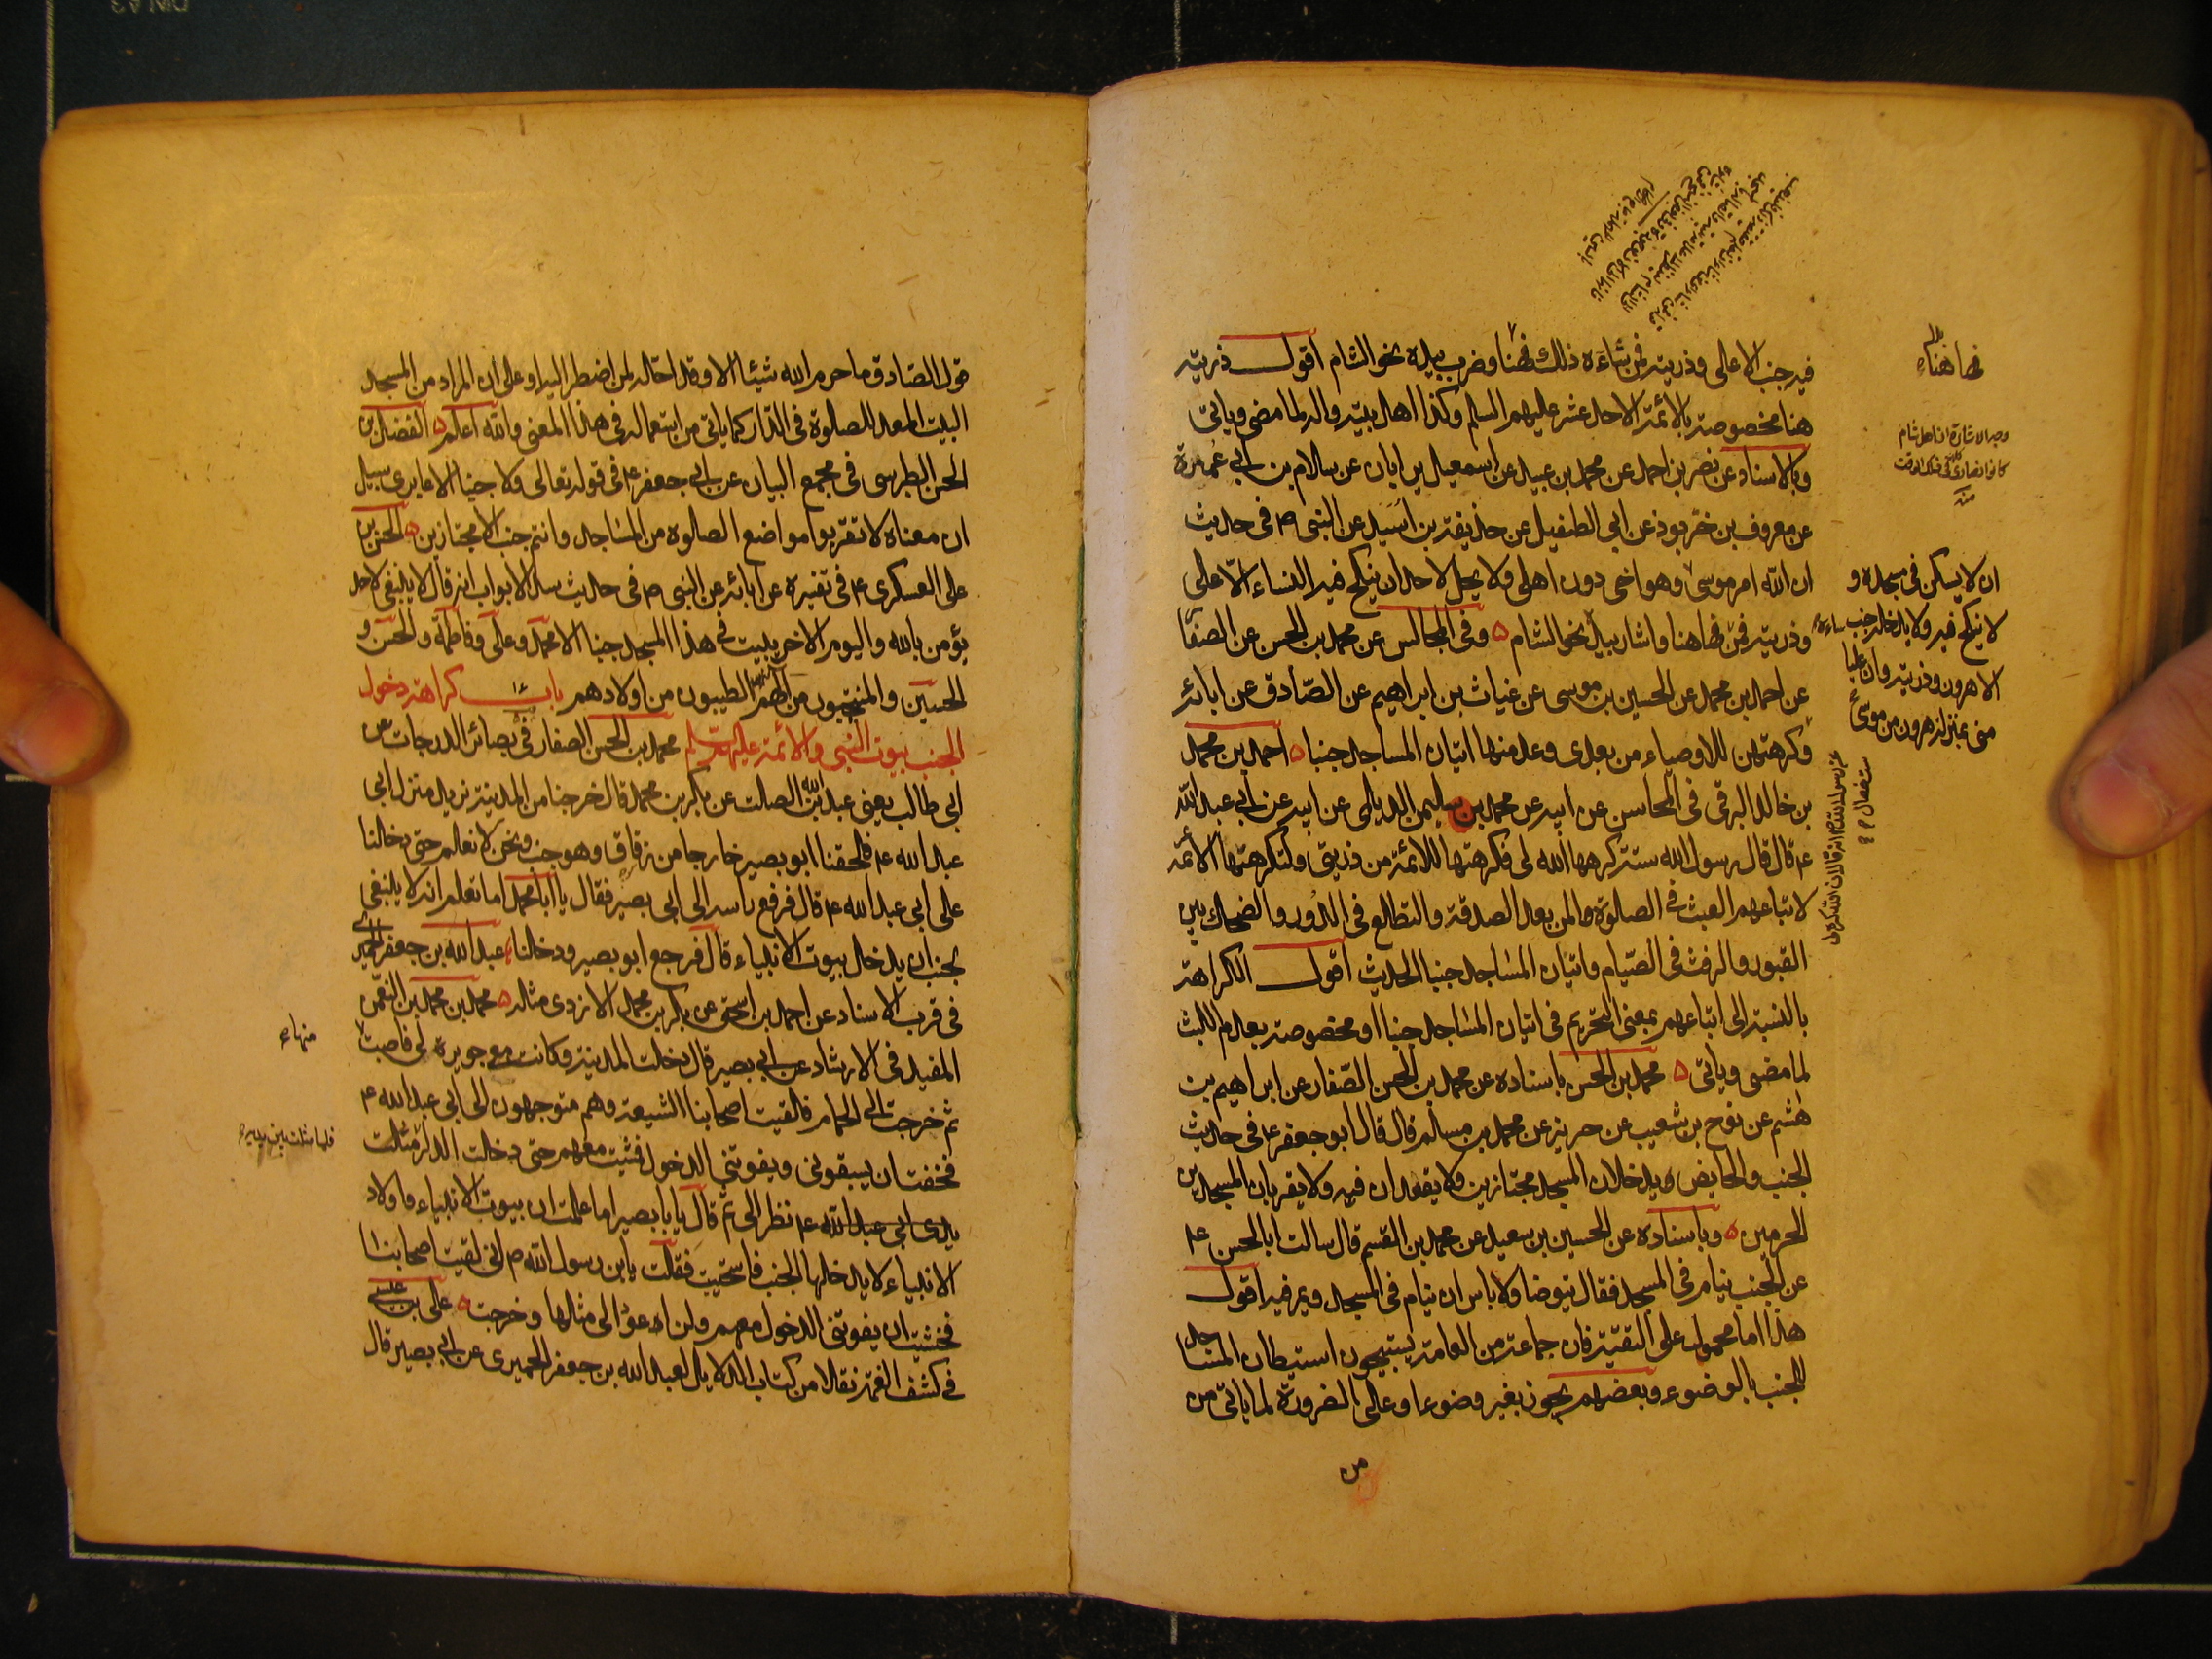 فيه جنب الا علي وذريته فمن شاءه ذلك فهنا وضرب بيده نحو الشام اقول ذريته
هنا مخصوصة بالائمة الاحد عشر عليهم السلم وكذا اهل بيته واله لما مضى وياتي
وبالاسناد عن نصر بن احمد عن محمد بن عبيد عن اسمعيل بن ابان عن سلام بن ابي عميرة
عن معروف بن خربوذ عن ابي الطفيل عن حذيفة بن اسيد عن النبي ص في حديث
ان الله امر موسى وهو اخي دون اهلي ولا يحل لاحد ان ينكح فيه النساء الا علي
وذريته فمن فهاهنا واشار بيده نحو الشام ۵ وفي المجالس عن محمد بن الحسن عن الصفا
عن احمد بن محمد عن الحسين بن موسى عن غياث بن ابراهيم عن الصادق عن ابائه
وكرهتهن للاوصياء من بعدي وعد منها اتيان المساجد جنبا ۵ احمد بن محمد
بن خالد البرقي في المحاسن عن ابيه عن محمد بن سليمن الديلمي عن ابيه عن ابي عبد الله
ع قال قال رسول الله ستة كرهها الله لي فكرهتها للائمة من ذريتي ولتكرهها الائمة
لاتباعهم العبث في الصلوة والمن بعد الصدقة والتطلع في الدور والضحك بين
القبور والرفث في الصيام واتيان المساجد جنبا الحديث اقول الكراهة
بالنسبة الى اتباعهم بمعنى التحريم في اتيان المساجد جنبا او مخصوصة بعدم اللبث
لما مضى وياتي ۵ محمد بن الحسن باسناده عن محمد بن الحسن الصفار عن ابراهيم بن
هشم عن نوح بن شعيب عن حريز عن محمد بن مسلم قال قال ابو جعفر ع في حديث
الجنب والحايض ويدخلان المسجد مجتازين ولا يقعدان فيه ولا يقربان المسجدين
الحرمين ۵ وباسناده عن الحسين بن سعيد عن محمد بن القسم قال سالت ابا الحسن ع
عن الجنب ينام في المسجد فقال يتوضا ولا باس ان ينام في المسجد ويمر فيه اقول
هذا اما محمول على التقية فان جماعة من العامة يستبيحون استيطان المساجد
للجنب بالوضوء وبعضهم يجوز بغير وضوء او على الضرورة لما ياتي من
من
فهاهنا
وجه الاشارة ان اهل شام
كانوا نصارى في ذلك الوقت
منه
ان لا يسكن في مسجده و
لا ينكح فيه ولا يدخله جنب
الا هرون وذريته وان عليا
مني بمنزلة هرون من موسى
عن رسول الله ص انه قال ان الله كره لي
ست خصال
قول الصادق ما حرم الله شيئا الا وقد احله لمن اضطر اليه او على ان المراد من المسجد
البيت المعد للصلوة في الدار كما ياتي من استعماله في هذا المعنى والله اعلم ۵ الفضل بن
الحسن الطبرسي في مجمع البيان عن ابي جعفر ع في قوله تعالى ولا جنبا الا عابري سبيل
ان معناه لا تقربوا مواضع الصلوة من المساجد وانتم جنب الا مجتازين ۵ الحسن بن
علي العسكري ع في تفسيره عن ابائه عن النبي ص في حديث سد الابواب انه قال لا ينبغي لاحد
يؤمن بالله واليوم الاخر يبيت في هذا المسجد جنبا الا محمد وعلي وفاطمة والحسن و
الحسين والمنتجبون من آلهم الطيبون من اولادهم باب كراهة دخول
الجنب بيوت النبي والائمة عليهم السلم محمد بن الحسن الصفار في بصائر الدرجات عن
ابي طالب يعني عبد الله بن الصلت عن بكر بن محمد قال خرجنا من المدينة نريد منزل ابي
عبد الله ع فلحقنا ابو بصير خارجا من زقاق وهو جنب ونحن لا نعلم حتى دخلنا
على ابي عبد الله ع قال فرفع راسه الى ابي بصير فقال يا ابا محمد اما تعلم انه لا ينبغي
لجنب ان يدخل بيوت الانبياء قال فرجع ابو بصير ودخلنا عبد الله بن جعفر الحميري
في قرب الاسناد عن احمد بن اسحق عن بكر بن محمد الازدي مثله ۵ محمد بن محمد بن النعمن
المفيد في الارشاد عن ابي بصير قال دخلت المدينة وكانت معي جويرة لي فاصبت
ثم خرجت الى الحمام فلقيت اصحابنا الشيعة وهم متوجهون الى ابي عبد الله ع
فخفت ان يسبقوني ويفوتني الدخول فمشيت معهم حتى دخلت الدار مثلت
يدي ابي عبد الله ع نظر الي ثم قال يا ابا بصير اما علمت ان بيوت الانبياء واولاد
الانبياء لا يدخلها الجنب فاستحييت فقلت يا بن رسول الله ص اني لقيت اصحابنا
فخشيت ان يفوتني الدخول معهم ولن اعود الى مثلها وخرجت ۵ علي بن عيسى
في كشف الغمة نقلا من كتاب الدلايل لعبد الله بن جعفر الحميري عن ابي بصير قال
منها
فلما مثلت بين يديه